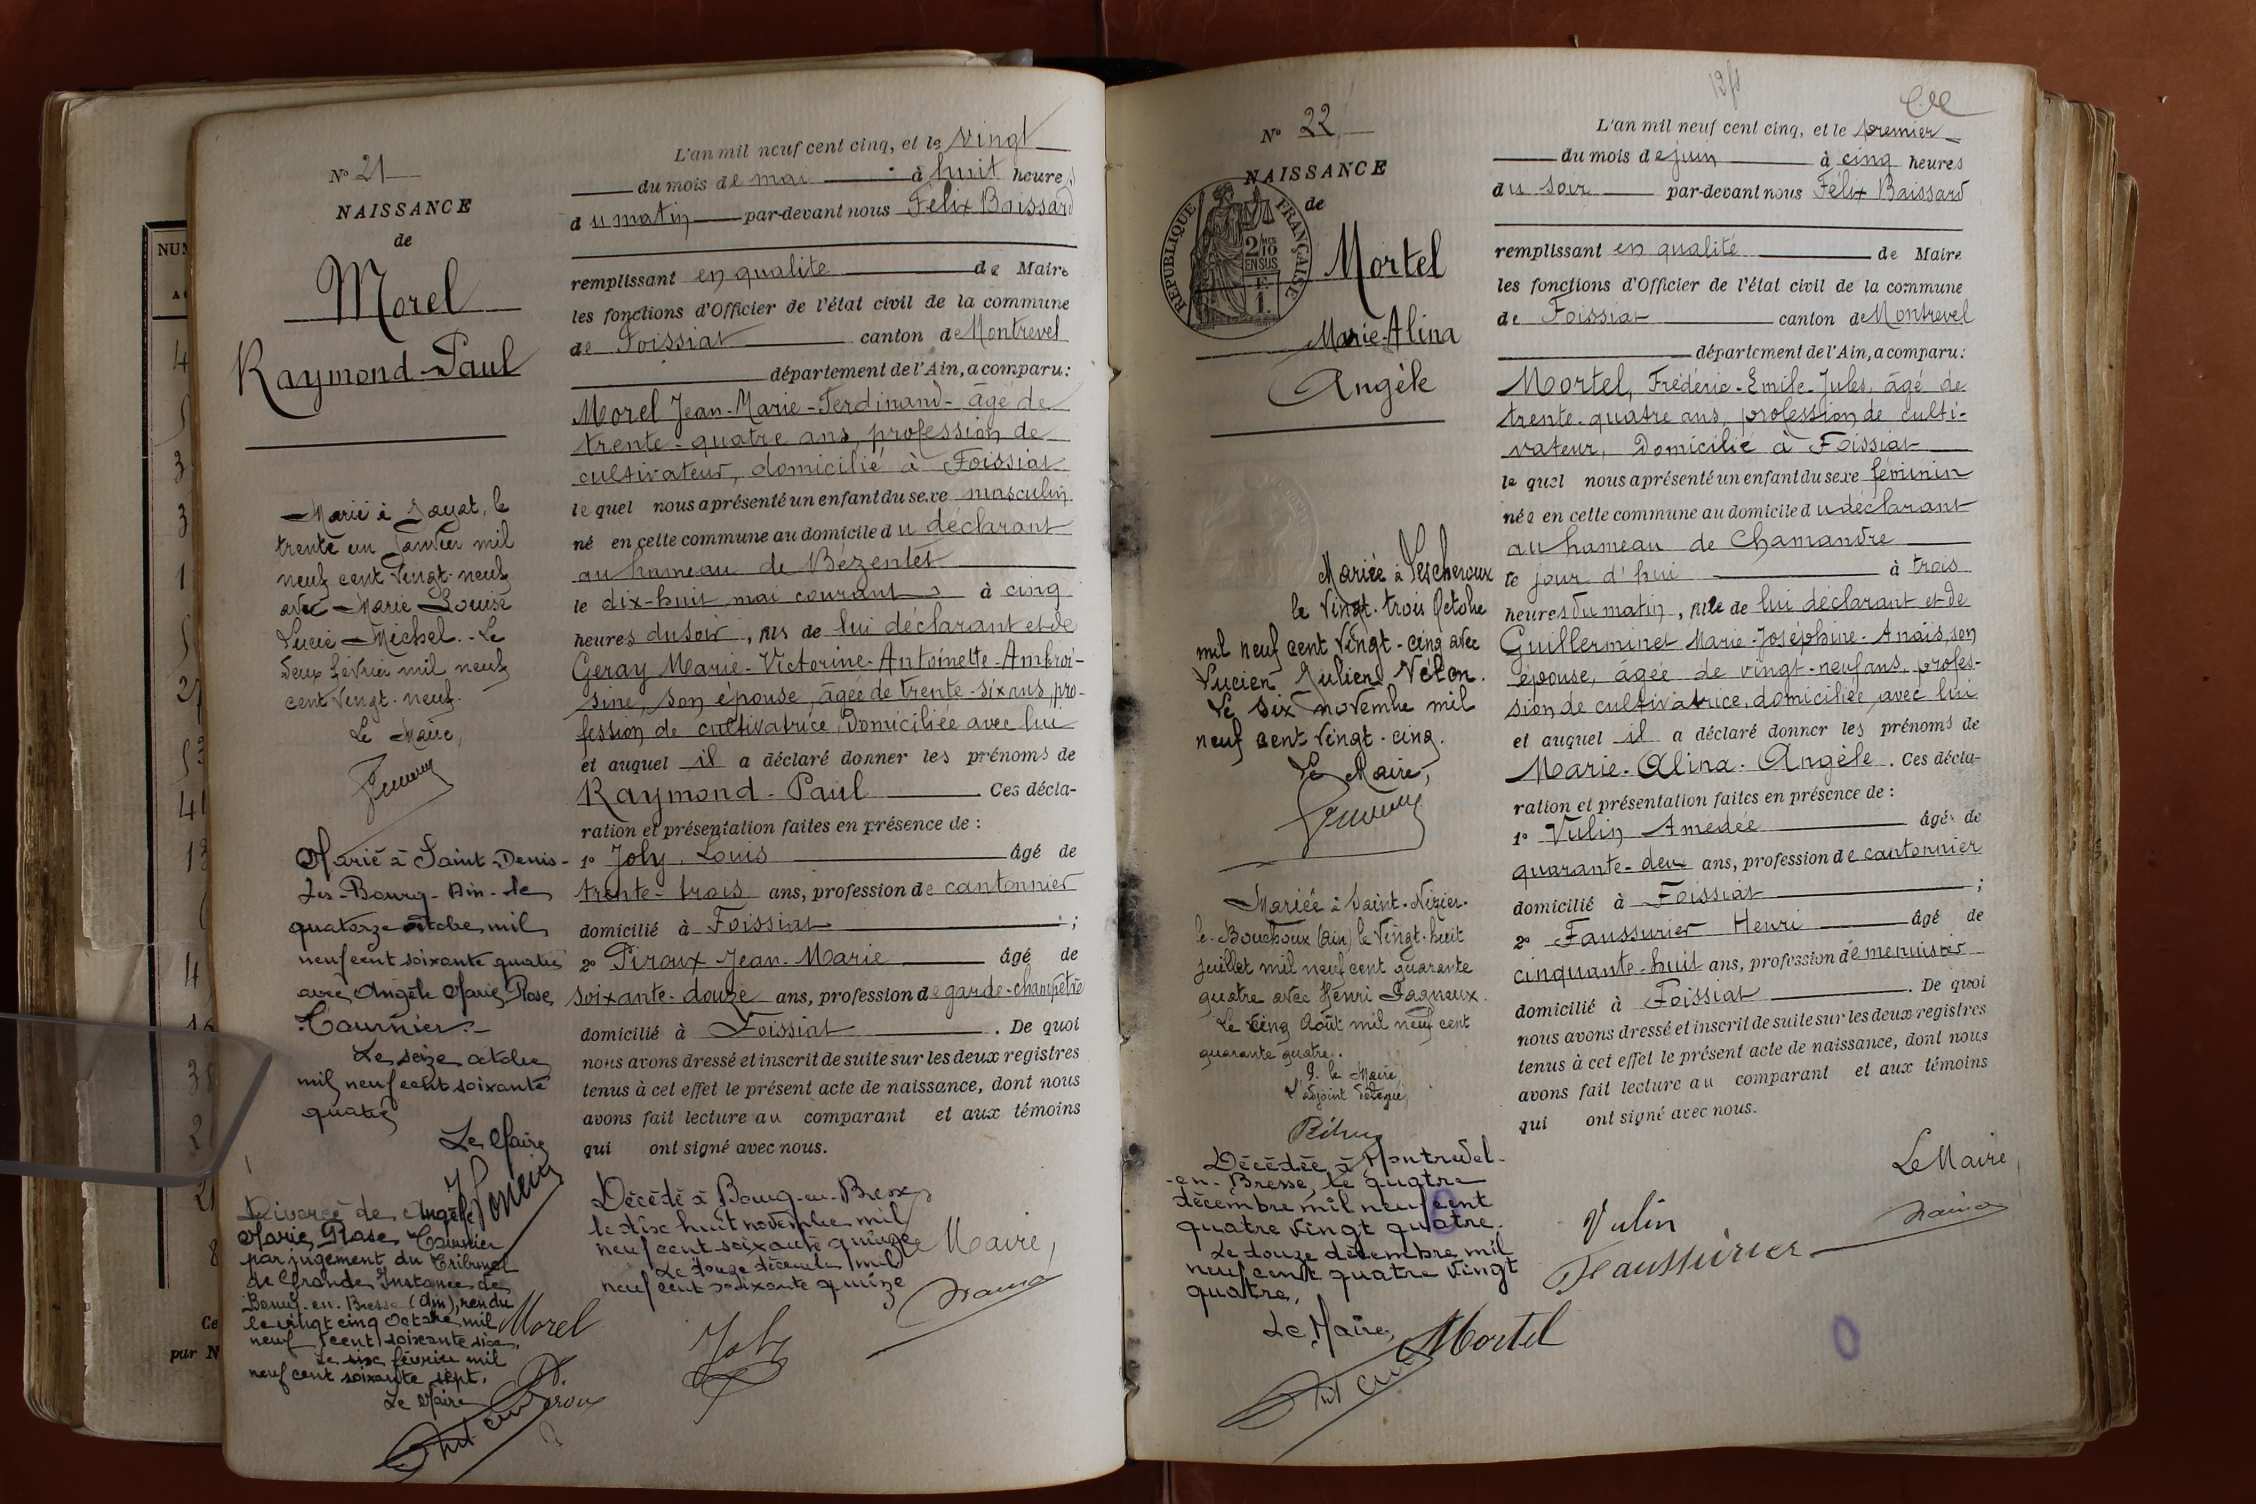 N° 21
NAISSANCE
de
Morel
Raymond-Paul
Marié à Jayat, le
trente un Janvier mil
neuf cent vingt-neuf
avec Marie Louise
Lucie Michel. Le
deux février mil neuf
cent vingt-neuf.
Le Maire,
Marié à Saint-Denis-
Les-Bourg-Ain-le
quatorze octobre mil
neuf cent soixante quatre
avec Angèle Marie Rose
Tournier.-
Le seize octobre
mil neuf cent soixante
quatre
Le Maire
Divorcé de Angèle
Marie Rose Tournier
par jugement du Tribunal
de Grande Instance de
Bourg-en-Bresse (Ain), rendu
le vingt cinq Octobre mil
neuf cent soixante six.
Le six février mil
neuf cent soixante sept.
Le Maire
L'an mil neuf cent cinq, et le vingt
du mois de mai à huit heures
du matin par-devant nous Félix Baissard
remplissant en qualité de Maire
les fonctions d'Officier de l'état civil de la commune
de Foissiat canton de Montrevel
département de l'Ain, a comparu:
Morel Jean-Marie-Ferdinand- âgé de
trente-quatre ans, profession de
cultivateur, domicilié à Foissiat
lequel nous a présenté un enfant du sexe masculin
né en cette commune au domicile du déclarant
au hameau de Bézentet
le dix-huit mai courant à cinq
heures du soir, fils de lui déclarant et de
Geray Marie-Victorine-Antoinette-Ambroi-
sine, son épouse, âgée de trente-six ans, pro-
fession de cultivatrice, domiciliée avec lui
et auquel il a déclaré donner les prénoms de
Raymond-Paul. Ces décla-
ration et présentation faites en présence de:
1° Joly, Louis âgé de
trente-trois ans, profession de cantonnier
domicilié à Foissiat;
2° Piroux Jean-Marie âgé de
soixante-douze ans, profession de garde-champêtre
domicilié à Foissiat. De quoi
nous avons dressé et inscrit de suite sur les deux registres
tenus à cet effet le présent acte de naissance, dont nous
avons fait lecture au comparant et aux témoins
qui ont signé avec nous.
Décédé à Bourg-en-Bresse
le dix huit novembre mil
neuf cent soixante quinze
Le douze décembre mil
neuf cent soixante quinze
Le Maire,
Morel
Joly
Piroux
N° 22
NAISSANCE
de
RÉPUBLIQUE FRANÇAISE
2/10 EN SUS
Mortel
Marie-Alina
Angèle
Mariée à Lescheroux
le vingt-trois Octobre
mil neuf cent vingt-cinq avec
Lucien Julien Véton.
Le six novembre mil
neuf cent vingt-cinq.
Le Maire,
Mariée à Saint-Nizier-
le-Bouchoux (Ain) le vingt-huit
juillet mil neuf cent quarante
quatre avec Henri Fagneux.
Le cinq Août mil neuf cent
quarante quatre.
P. le Maire
L'adjoint délégué,
Décédée à Montrevel-
-en-Bresse, le quatre
décembre mil neuf cent
quatre vingt quatre.
Le douze décembre mil
neuf cent quatre vingt
quatre,
Le Maire,
L'an mil neuf cent cinq, et le premier
du mois de juin à cinq heures
du soir par-devant nous Félix Baissard
remplissant en qualité de Maire
les fonctions d'Officier de l'état civil de la commune
de Foissiat canton de Montrevel
département de l'Ain, a comparu:
Mortel, Frédéric-Emile-Jules, âgé de
trente-quatre ans, profession de culti-
vateur, domicilié à Foissiat
lequel nous a présenté un enfant du sexe féminin
née en cette commune au domicile du déclarant
au hameau de Chamandre
le jour d'hui à trois
heures du matin, fille de lui déclarant et de
Guillerminet Marie-Joséphine-Anaïs, son
épouse, âgée de vingt-neuf ans, profes-
sion de cultivatrice, domiciliée avec lui
et auquel il a déclaré donner les prénoms de
Marie-Alina-Angèle. Ces décla-
ration et présentation faites en présence de:
1° Vulin Amedée âgé de
quarante-deux ans, profession de cantonnier
domicilié à Foissiat;
2° Faussurier Henri âgé de
cinquante-huit ans, profession de menuisier
domicilié à Foissiat. De quoi
nous avons dressé et inscrit de suite sur les deux registres
tenus à cet effet le présent acte de naissance, dont nous
avons fait lecture au comparant et aux témoins
qui ont signé avec nous.
Le Maire,
Vulin
Faussurier
Mortel